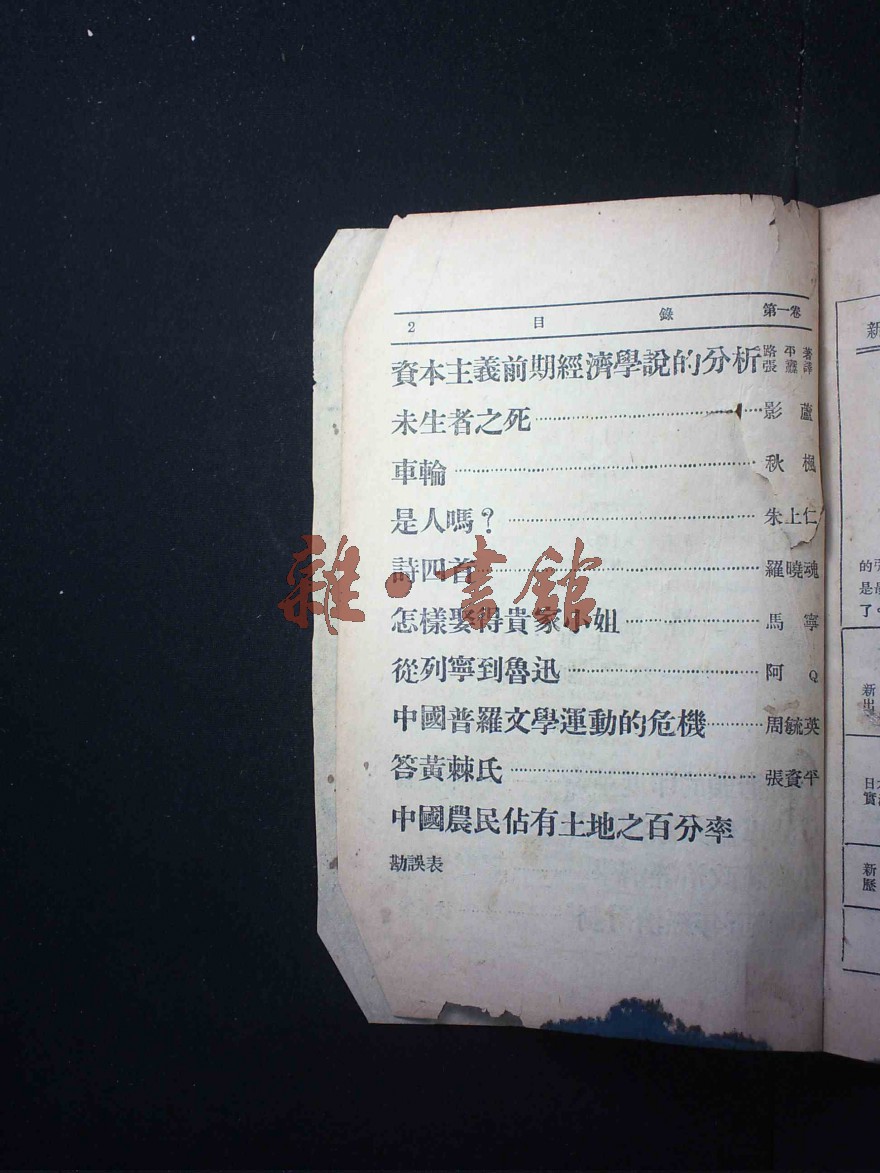 2 目 錄 第一卷
資本主義前期經濟學說的分析 路平著 張譯
未生者之死 影蘆
車輪 秋楓
是人嗎？ 朱上仁
詩四首 羅曉魂
怎樣娶得貴家小姐 馬寧
從列寧到魯迅 阿Q
中國普羅文學運動的危機 周毓英
答黃棘氏 張資平
中國農民佔有土地之百分率
勘誤表
雜·書館
新
的
是
了。
新出
日
實
新歷